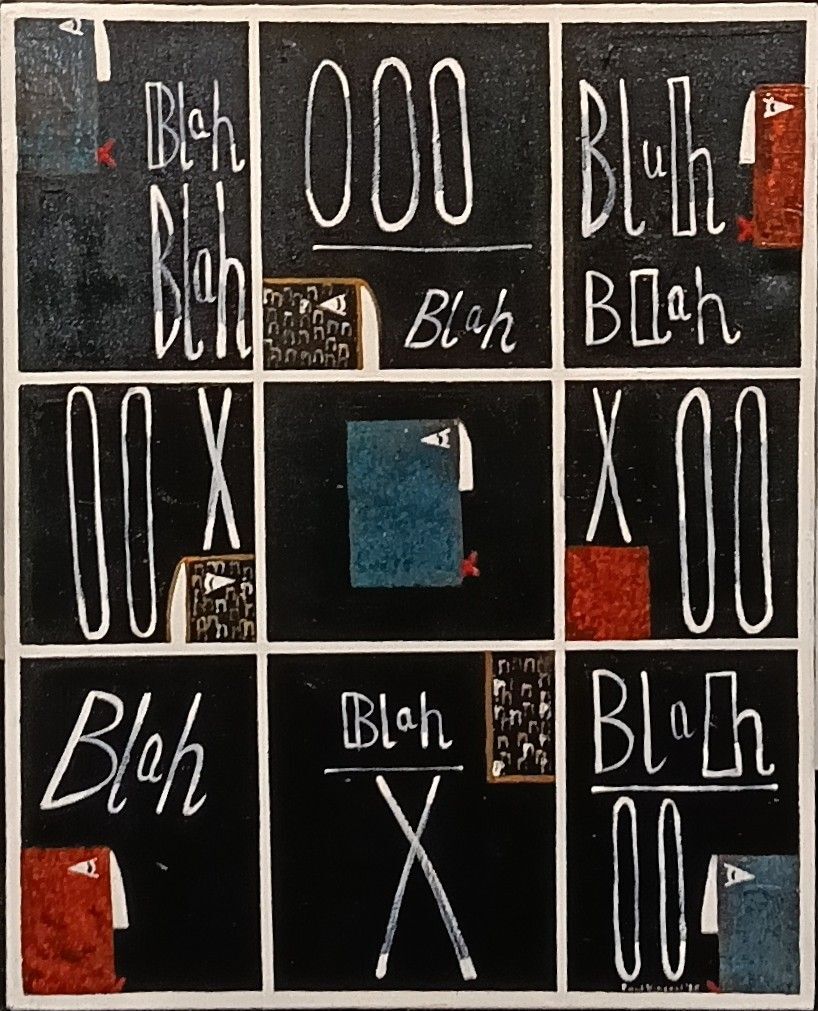 Blah
Blah
OOO
Blah
Bluh
Bah
OOX
XOO
Blah
Blah
X
Blah
OO